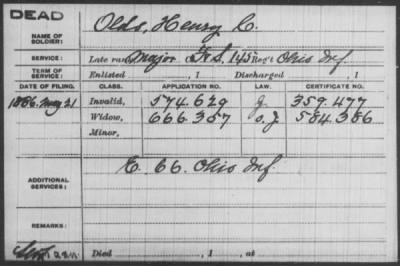 DEAD
NAME OF SOLDIER: Olds, Henry C.
SERVICE: Late rank, Major F.S. 145 Reg't Ohio Inf.
TERM OF SERVICE: Enlisted , 1 Discharged , 1
DATE OF FILING. CLASS. APPLICATION NO. LAW. CERTIFICATE NO.
1886. May 21 Invalid, 574.629 359.477
Widow, 666.357 584.386
Minor,
ADDITIONAL SERVICES: E. 66. Ohio Inf.
REMARKS:
Died , 1 , at